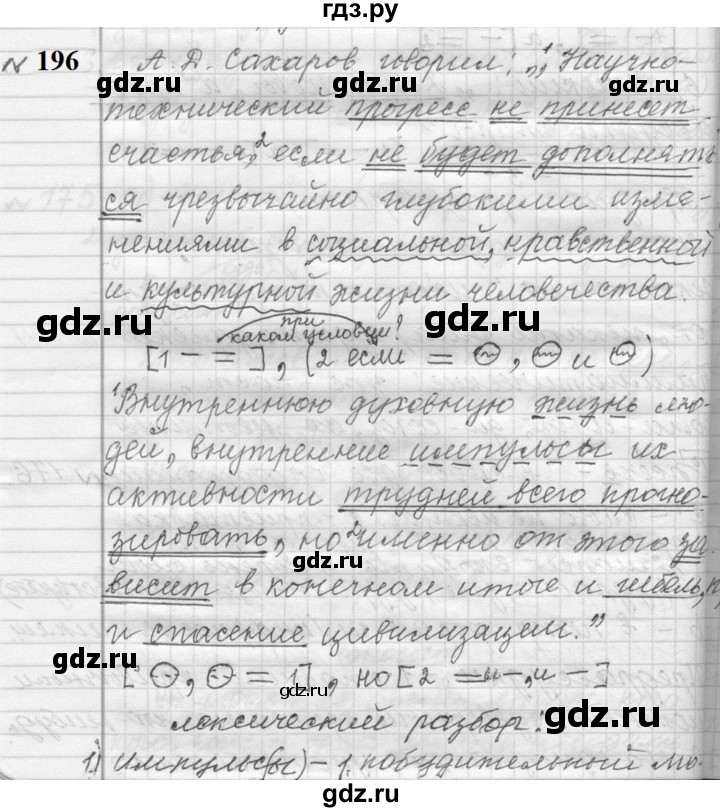 гдз.ру
№ 196 А. Д. Сахаров говорил: „¹Научно-
gdz.ru gdz.ru
технический прогресс не принесет
счастья,² если не будет дополнять
ся чрезвычайно глубокими изме-
gdz.ru
нениями в социальной, нравственной
и культурной жизни человечества.
gdz.ru gdz.ru
при каком условии?
[1 – = ], (2 если = ~, ~ и ~)
¹Внутреннюю духовную жизнь лю-
дей, внутренние импульсы их
gdz.ru
активности трудней всего прогно-
зировать, но ²именно от этого за-
gdz.ru
висит в конечном итоге и гибель,
gdz.ru
и спасение цивилизации.”
gdz.ru
[ –, – = 1], но [2 = и –, и –]
gdz.ru
лексический разбор:
gdz.ru
1) импульс(ы) – 1. побудительный мо-